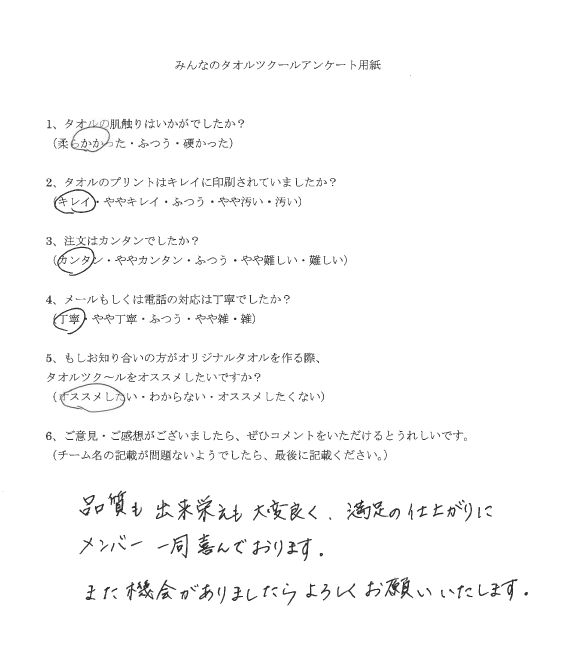 みんなのタオルツクールアンケート用紙
1、タオルの肌触りはいかがでしたか？
（柔らかかった・ふつう・硬かった）
2、タオルのプリントはキレイに印刷されていましたか？
（キレイ・ややキレイ・ふつう・やや汚い・汚い）
3、注文はカンタンでしたか？
（カンタン・ややカンタン・ふつう・やや難しい・難しい）
4、メールもしくは電話の対応は丁寧でしたか？
（丁寧・やや丁寧・ふつう・やや雑・雑）
5、もしお知り合いの方がオリジナルタオルを作る際、
タオルツク～ルをオススメしたいですか？
（オススメしたい・わからない・オススメしたくない）
6、ご意見・ご感想がございましたら、ぜひコメントをいただけるとうれしいです。
（チーム名の記載が問題ないようでしたら、最後に記載ください。）
品質も出来栄えも大変良く、満足の仕上がりに
メンバー一同喜んでおります。
また機会がありましたらよろしくお願いいたします。